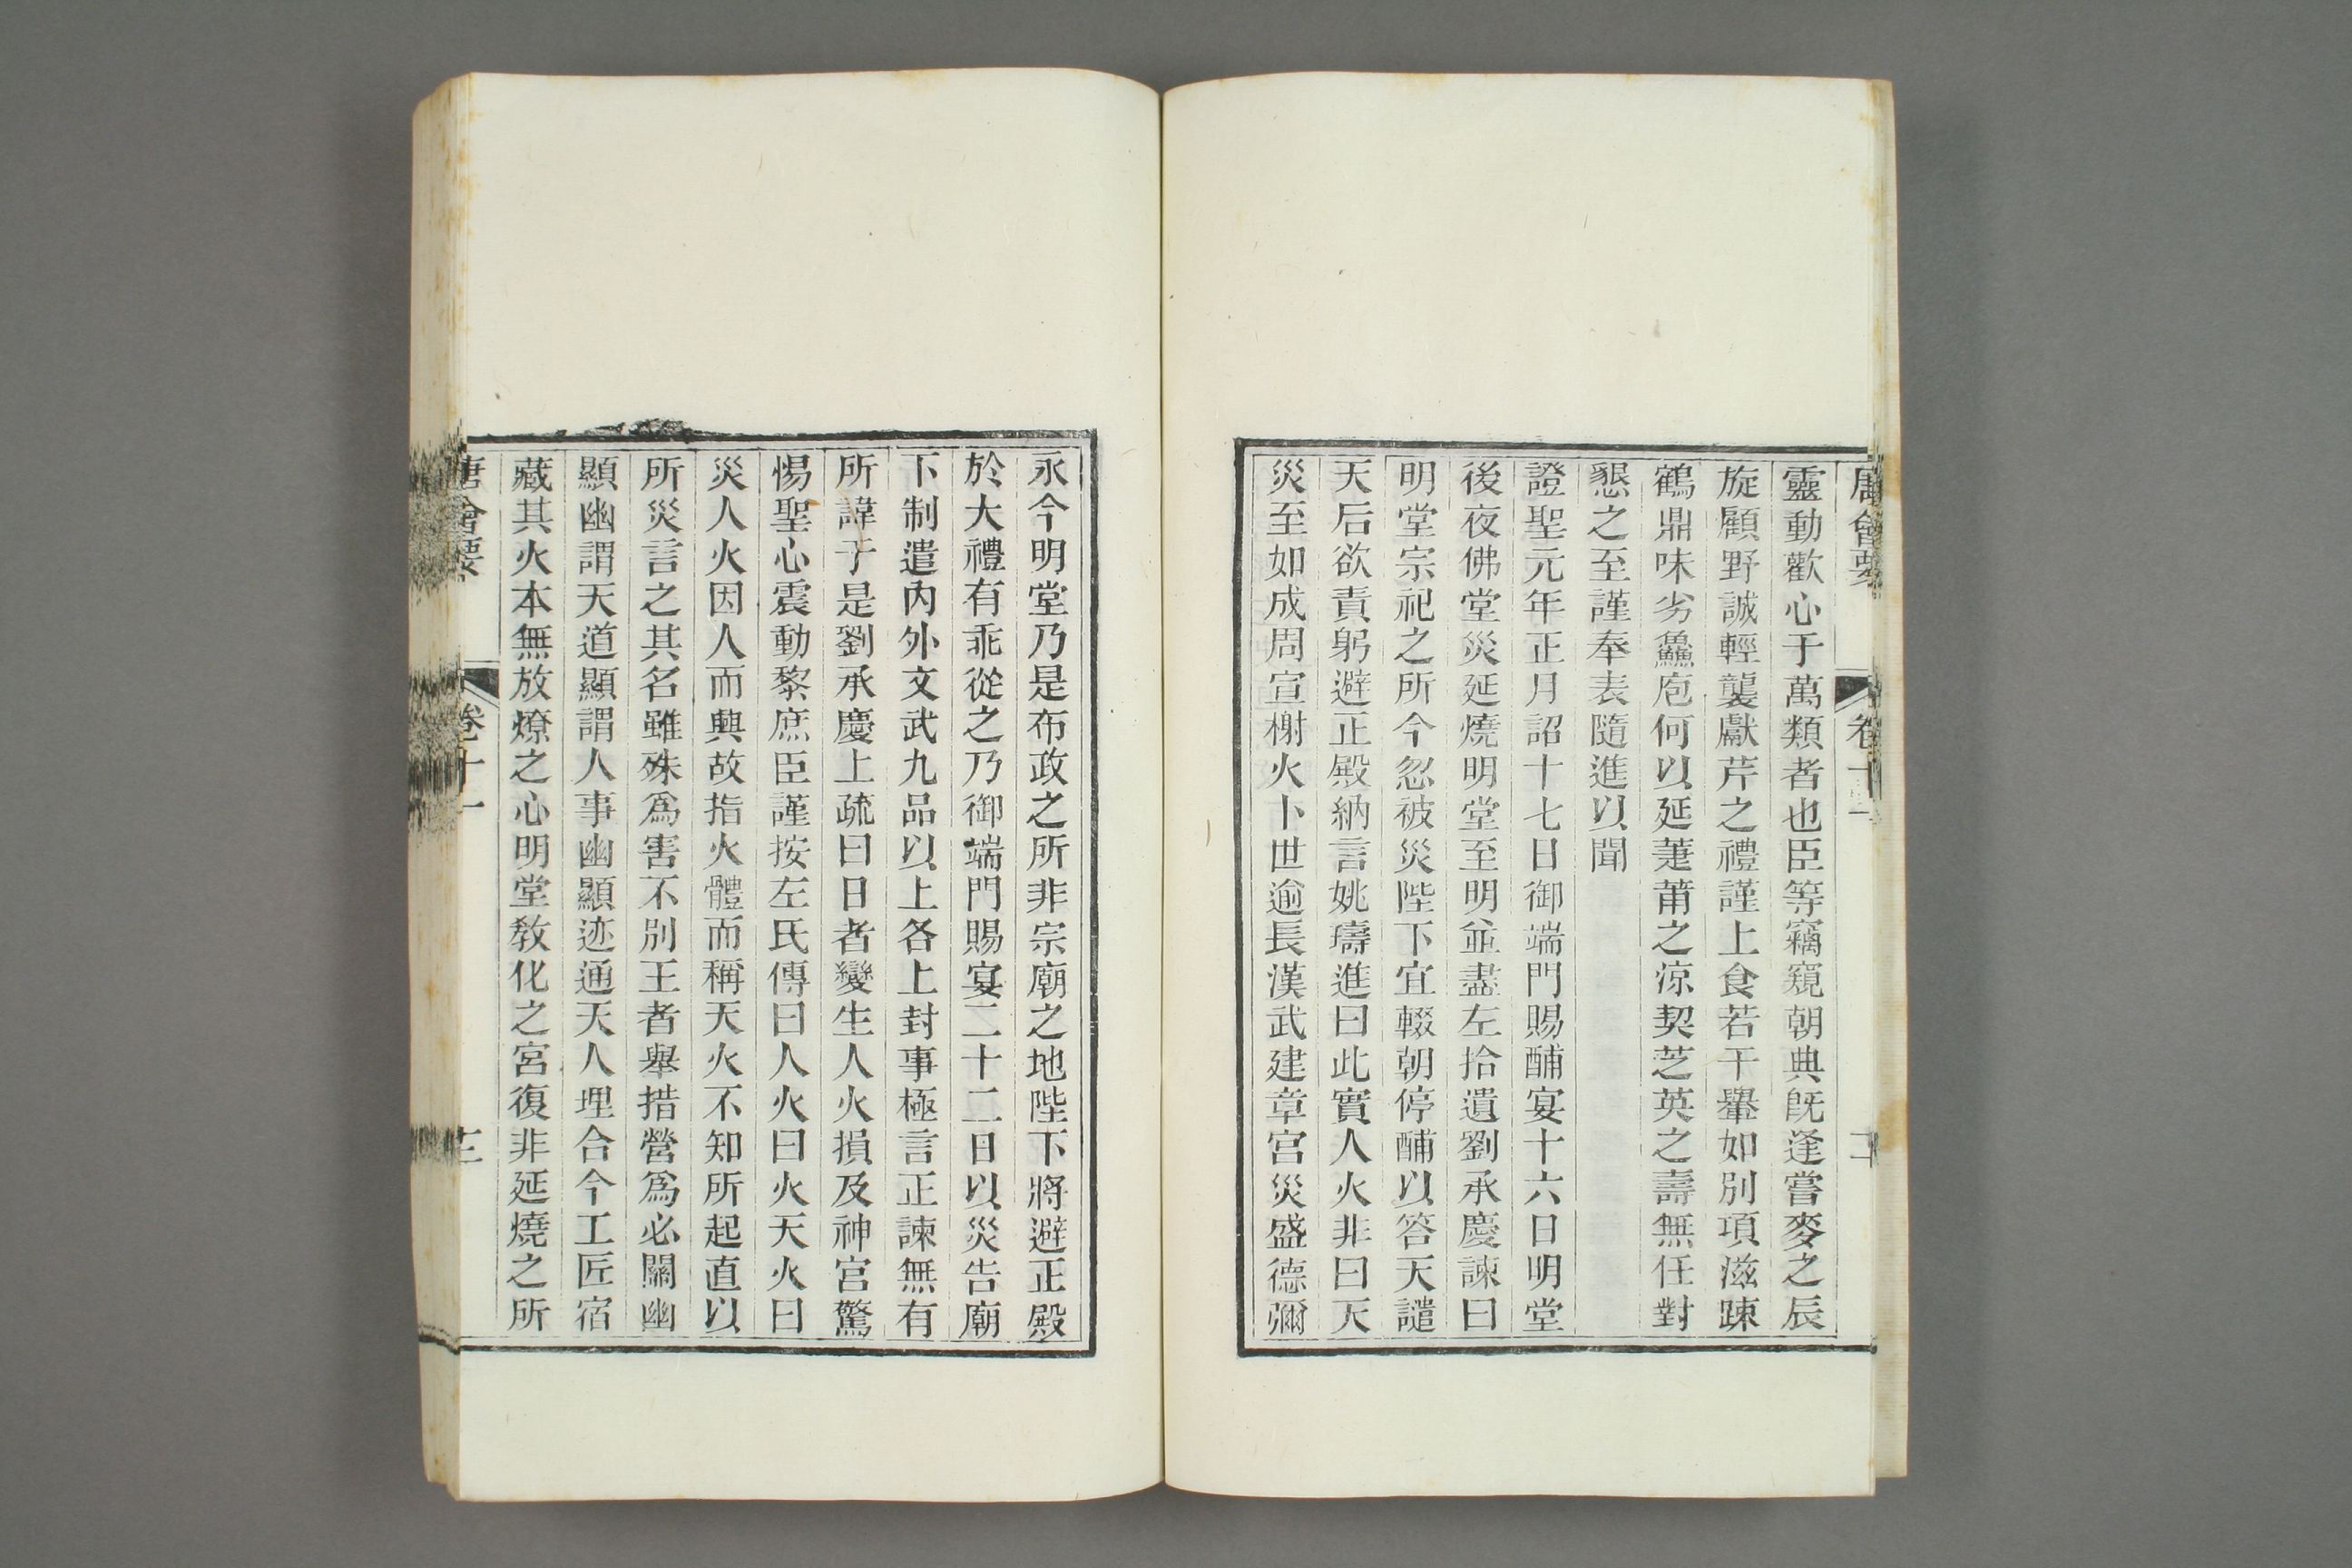 唐會要 卷十一 二
靈動歡心于萬類者也臣等竊窺朝典既逢嘗麥之辰
旋顧野誠輕襲獻芹之禮謹上食若干轝如別項滋踈
鶴鼎味劣鱻庖何以延萐莆之涼契芝英之壽無任對
懇之至謹奉表隨進以聞
證聖元年正月詔十七日御端門賜酺宴十六日明堂
後夜佛堂災延燒明堂至明並盡左拾遺劉承慶諫曰
明堂宗祀之所今忽被災陛下宜輟朝停酺以答天譴
天后欲責躬避正殿納言姚璹進曰此實人火非曰天
災至如成周宣榭火卜世逾長漢武建章宮災盛德彌
永今明堂乃是布政之所非宗廟之地陛下將避正殿
於大禮有乖從之乃御端門賜宴二十二日以災告廟
下制遣內外文武九品以上各上封事極言正諫無有
所諱于是劉承慶上疏曰日者變生人火損及神宮驚
惕聖心震動黎庶臣謹按左氏傳曰人火曰火天火曰
災人火因人而興故指火體而稱天火不知所起直以
所災言之其名雖殊爲害不別王者舉措營爲必關幽
顯幽謂天道顯謂人事幽顯迹通天人理合今工匠宿
藏其火本無放燎之心明堂教化之宮復非延燒之所
唐會要 卷十一 三